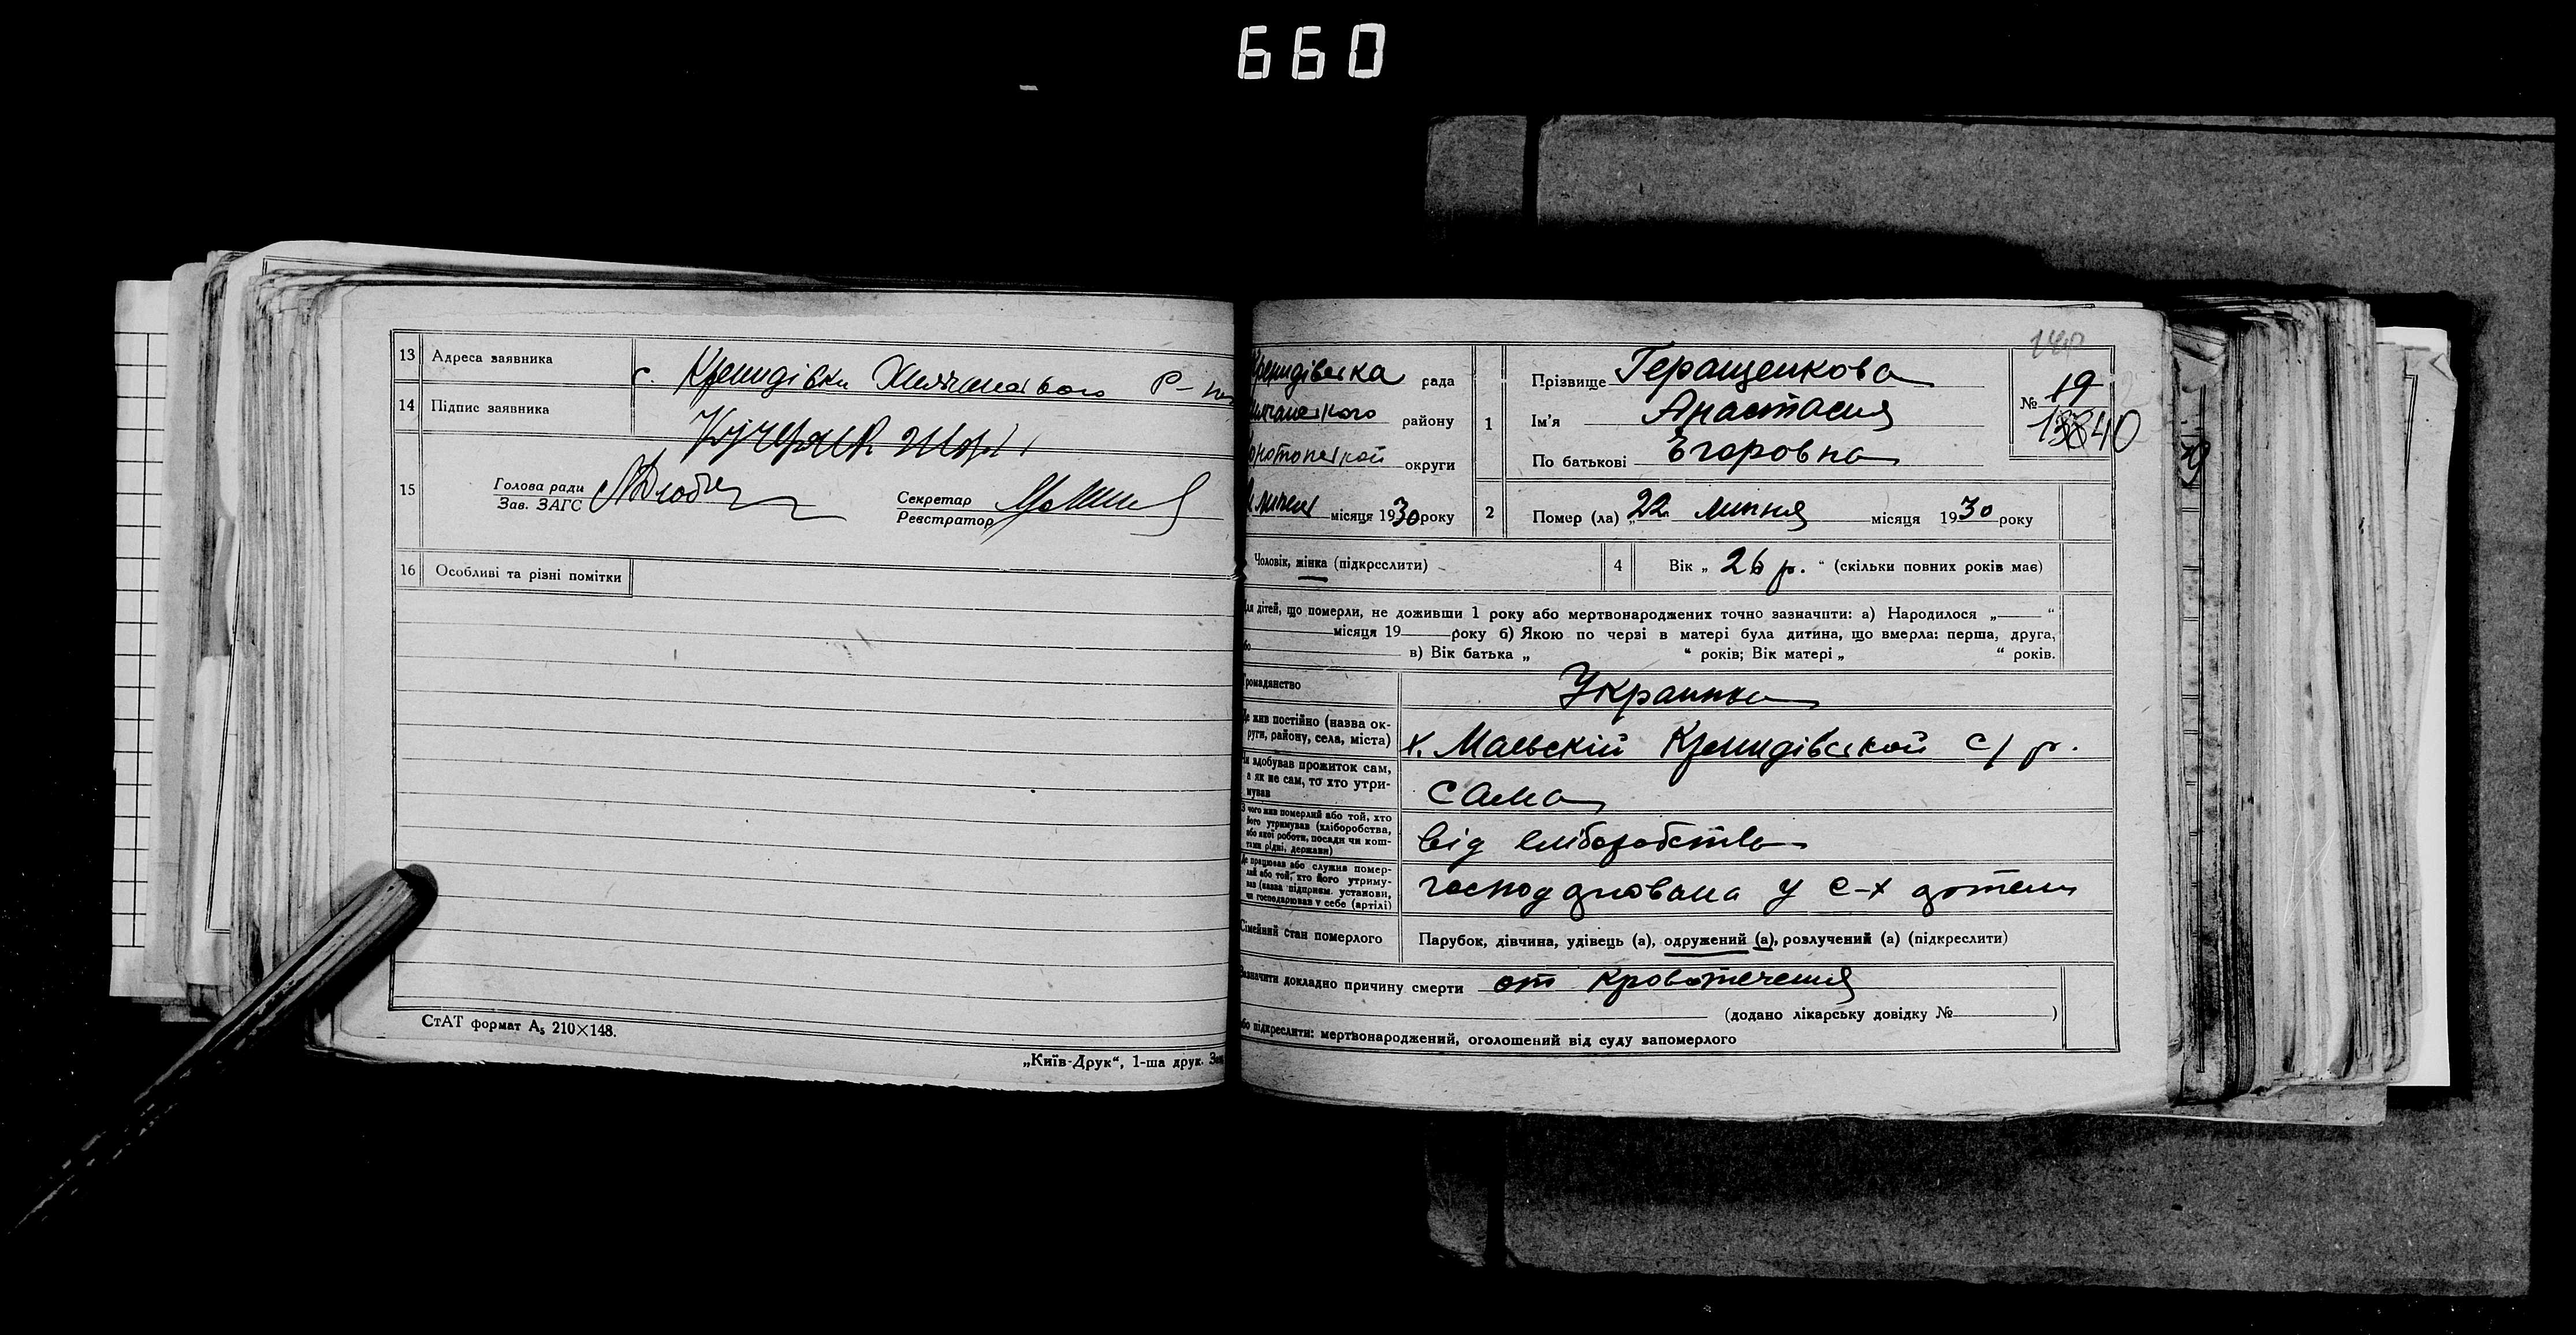 660
13 Адреса заявника с. Кремидівки
14 Підпис заявника
15 Голова ради
Зав. ЗАГС
Секретар
Реєстратор
16 Особливі та різні помітки
СтАТ формат А₅ 210×148.
„Київ-Друк“, 1-ша друк.
рада
району
округи
місяця 1930 року
1 Прізвище Геращенкова
Ім'я Анастасия
По батькові Егоровна
№ 19
40
2 Помер (ла) „22 липня місяця 1930 року
Чоловік, жінка (підкреслити)
4 Вік „ 26 р. “ (скільки повних років має)
дітей, що померли, не доживши 1 року або мертвонароджених точно зазначити: а) Народилося „ “
місяця 19 року б) Якою по черзі в матері була дитина, що вмерла: перша, друга,
в) Вік батька „ “ років; Вік матері „ “ років.
Громадянство Украинка
Де жив постійно (назва ок-
руги, району, села, міста) х. Маевскій Кремидівской с/р.
Чи здобував прожиток сам,
а як не сам, то хто утри-
мував сама
З чого жив померлий або той, хто
його утримував (хліборобства,
або якої роботи, посади чи кош-
тами рідні, держави) від
Де працював або служив помер-
лий або той, хто його утриму-
вав (назва підприєм. установи,
чи господарював у себе (артілі) у с-х
Сімейний стан померлого Парубок, дівчина, удівець (а), одружений (а), розлучений (а) (підкреслити)
Зазначити докладно причину смерти от кровотечения
(додано лікарську довідку № )
або підкреслити: мертвонароджений, оголошений від суду запомерлого